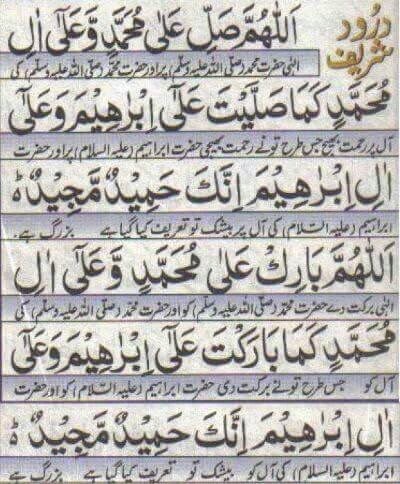 درود شریف
اَللّٰهُمَّ صَلِّ عَلٰی مُحَمَّدٍ وَّعَلٰٓی اٰلِ
الٰہی حضرت محمد (صلی اللہ علیہ وسلم) پر اور حضرت محمد (صلی اللہ علیہ وسلم) کی
مُحَمَّدٍ كَمَا صَلَّيْتَ عَلٰٓی اِبْرٰهِيْمَ وَعَلٰٓی
آل پر رحمت بھیج جس طرح تو نے رحمت بھیجی حضرت ابراہیم (علیہ السلام) پر اور حضرت
اٰلِ اِبْرٰهِيْمَ اِنَّكَ حَمِيْدٌ مَّجِيْدٌ ط
ابراہیم (علیہ السلام) کی آل پر بیشک تو تعریف کیا گیا ہے بزرگ ہے۔
اَللّٰهُمَّ بَارِكْ عَلٰی مُحَمَّدٍ وَّعَلٰٓی اٰلِ
الٰہی برکت دے حضرت محمد (صلی اللہ علیہ وسلم) کو اور حضرت محمد (صلی اللہ علیہ وسلم) کی
مُحَمَّدٍ كَمَا بَارَكْتَ عَلٰٓی اِبْرٰهِيْمَ وَعَلٰٓی
آل کو جس طرح تو نے برکت دی حضرت ابراہیم (علیہ السلام) کو اور حضرت
اٰلِ اِبْرٰهِيْمَ اِنَّكَ حَمِيْدٌ مَّجِيْدٌ ط
ابراہیم (علیہ السلام) کی آل کو بیشک تو تعریف کیا گیا ہے بزرگ ہے